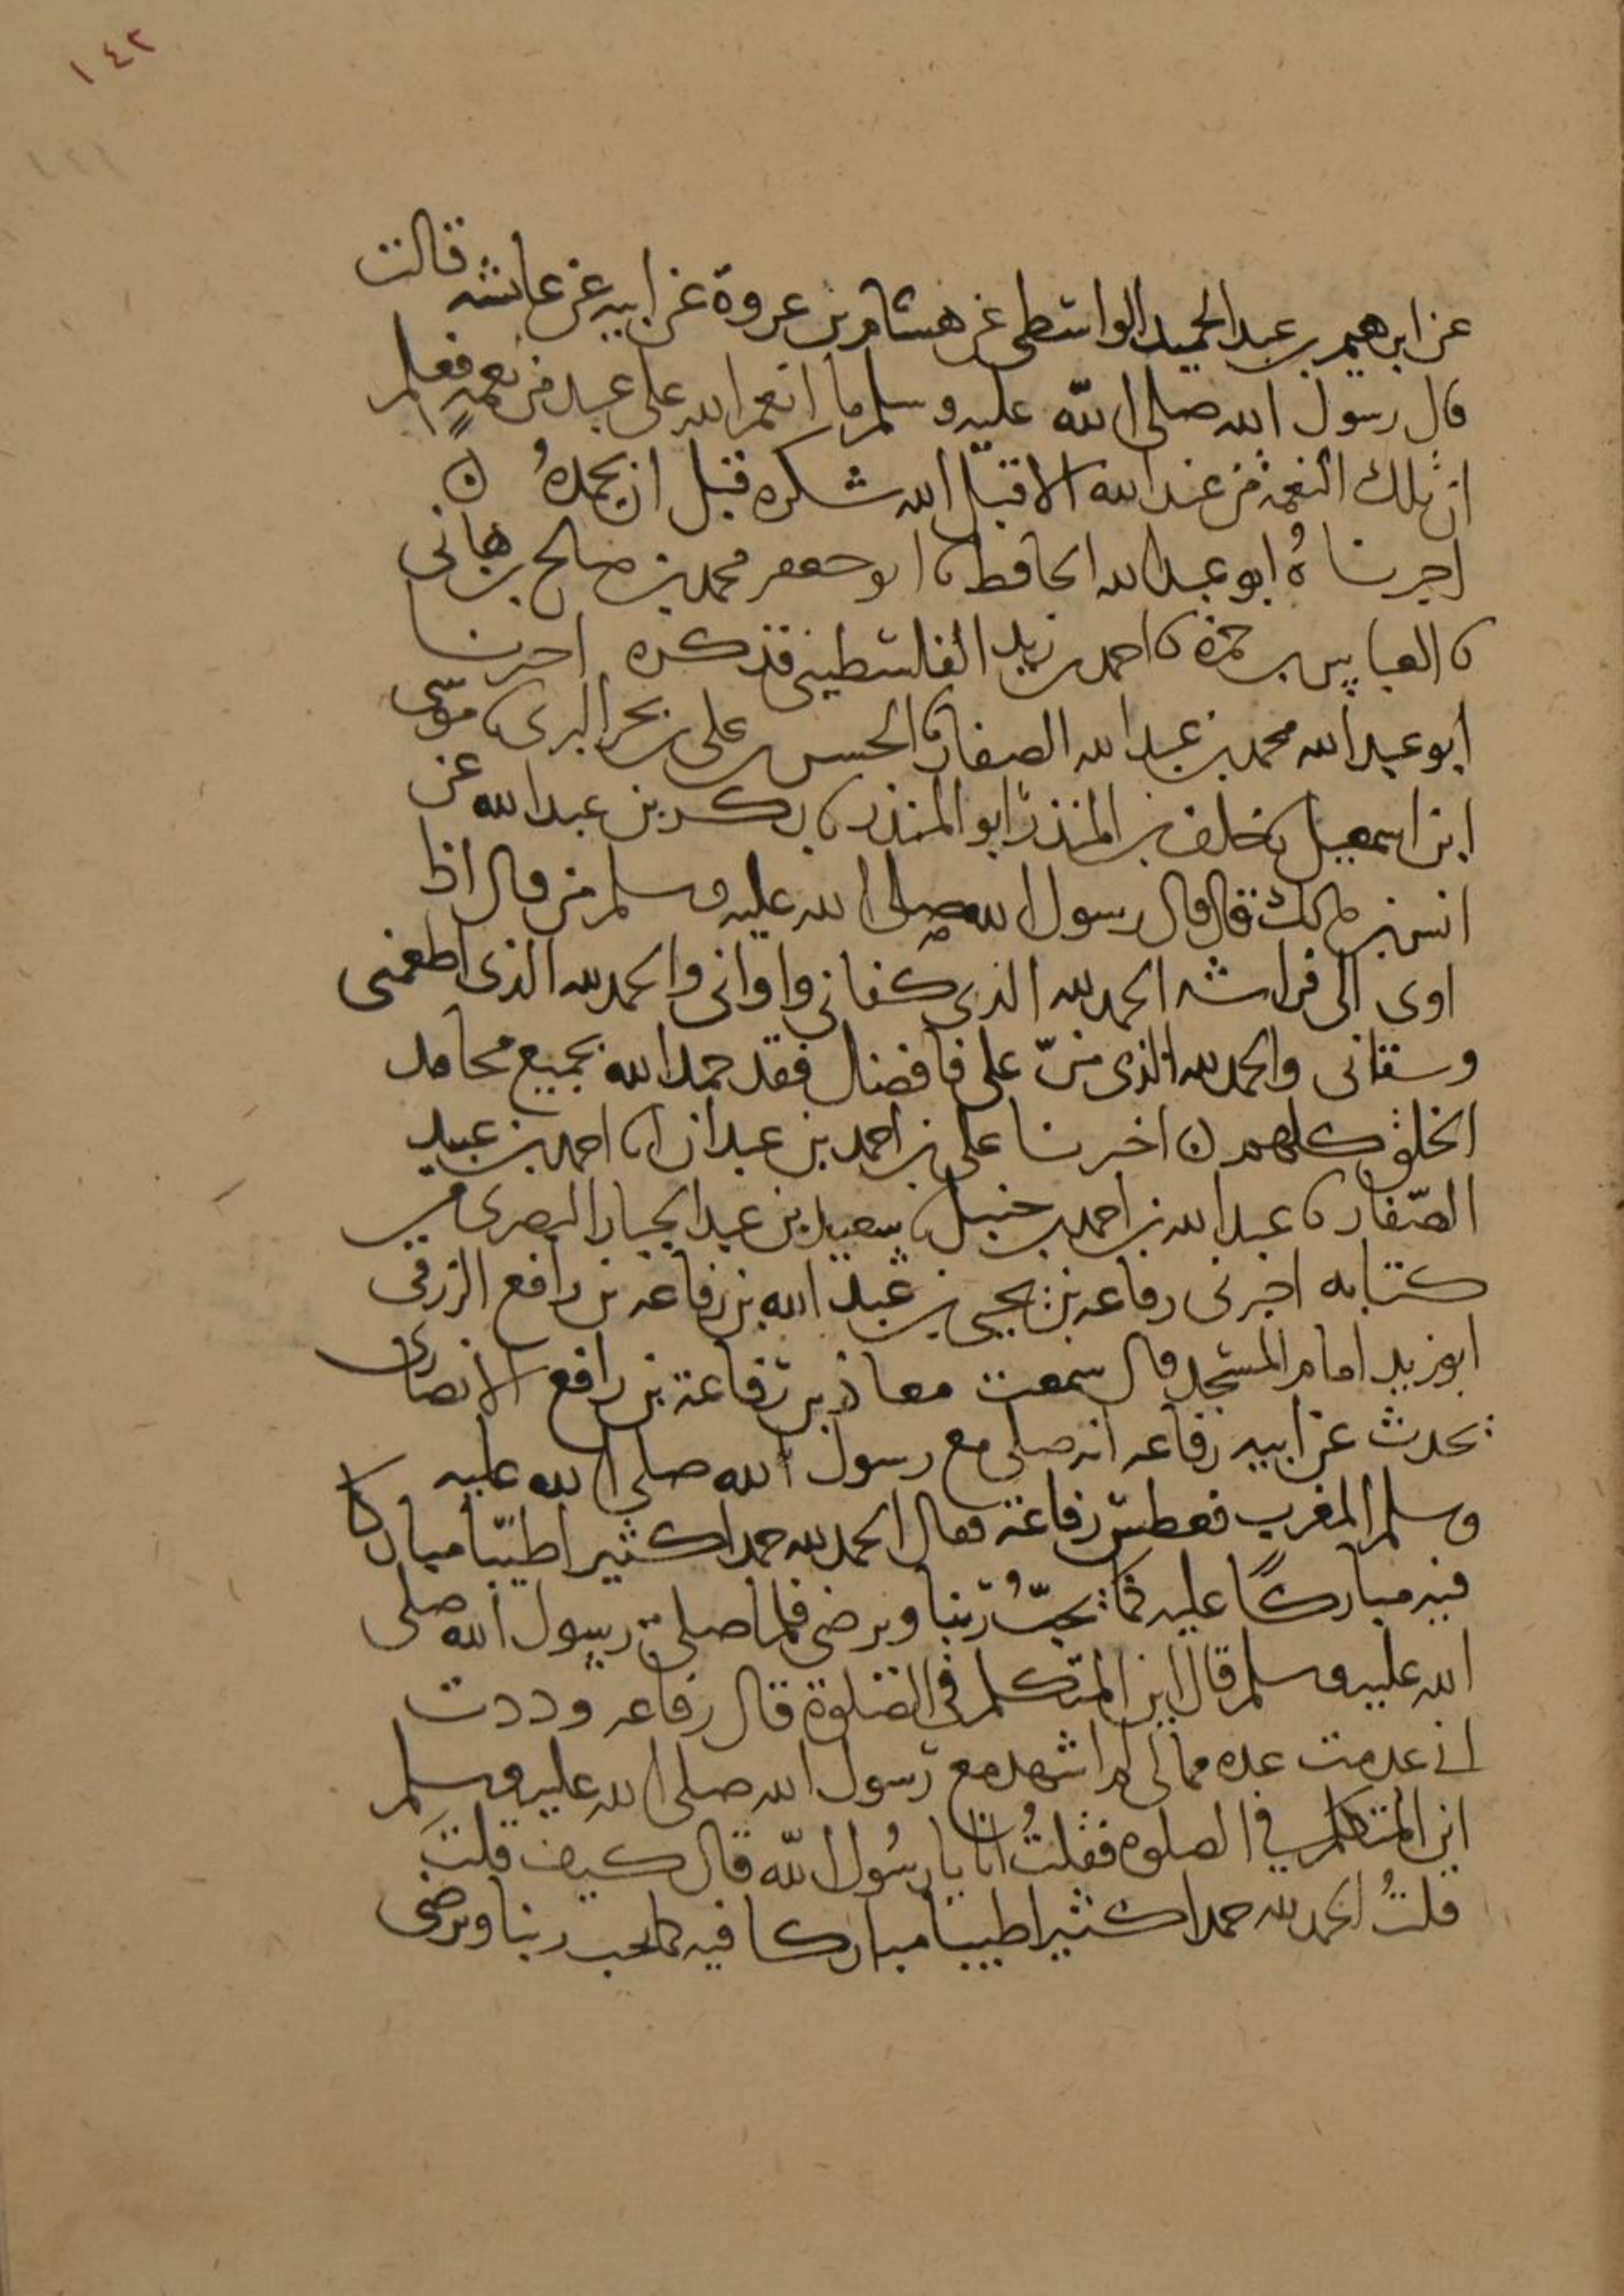 ١٤٢
عن ابرهيم بن عبد الحميد الواسطى عن هشام بن عروة عن ابيه عن عائشه قالت
قال رسول الله صلى الله عليه وسلم ما انعم الله على عبد من نعمه فعلم
ان تلك النعمة من عند الله الا قبل الله شكره قبل ان يحمده ن
اخبرناهُ ابو عبد الله الحافظ نا ابو جعفر محمد بن صالح بن هانى
نا العباس بن حمزة نا احمد بن زيد الفلسطينى فذكره اخبرنا
ابو عبد الله محمد بن عبد الله الصفار نا الحسن بن على بن بحر البرى نا موسى
ابن اسمعيل نا خلف بن المنذر ابو المنذر نا بكر بن عبد الله عن
انس بن مالك قال قال رسول الله صلى الله عليه وسلم من قال اذا
اوى الى فراشه الحمد لله الذى كفانى واوانى والحمد لله الذى اطعمنى
وسقانى والحمد لله الذى منّ على فافضل فقد حمد الله بجميع محامد
الخلق كلهم ن اخبرنا على بن احمد بن عبدان انا احمد بن عبيد
الصّفار نا عبد الله بن احمد بن حنبل نا سعيد بن عبد الجبار البصرى من
كتابه اخبرنى رفاعه بن يحيى بن عبد الله بن رفاعه بن رافع الزرقى
ابو زيد امام المسجد قال سمعت معاذ بن رفاعة بن رافع الانصارى
يحدث عن ابيه رفاعه انه صلى مع رسول الله صلى الله عليه
وسلم المغرب فعطس رفاعة فقال الحمد لله حمدا كثيرا طيّبا مباركا
فيه مباركًا عليه كما يحبّ ربنا ويرضى فلما صلى رسول الله صلى
الله عليه وسلم قال اين المتكلم فى الصلوة قال رفاعه وددت
انى عدمت عده من مالى لم اشهد مع رسول الله صلى الله عليه وسلم
اين المتكلم في الصلوه فقلتُ انا يا رسُول الله قال كيف قلتَ
قلتُ الحمد لله حمدا كثيرا طيبا مباركا فيه كما يحب ربنا ويرضى